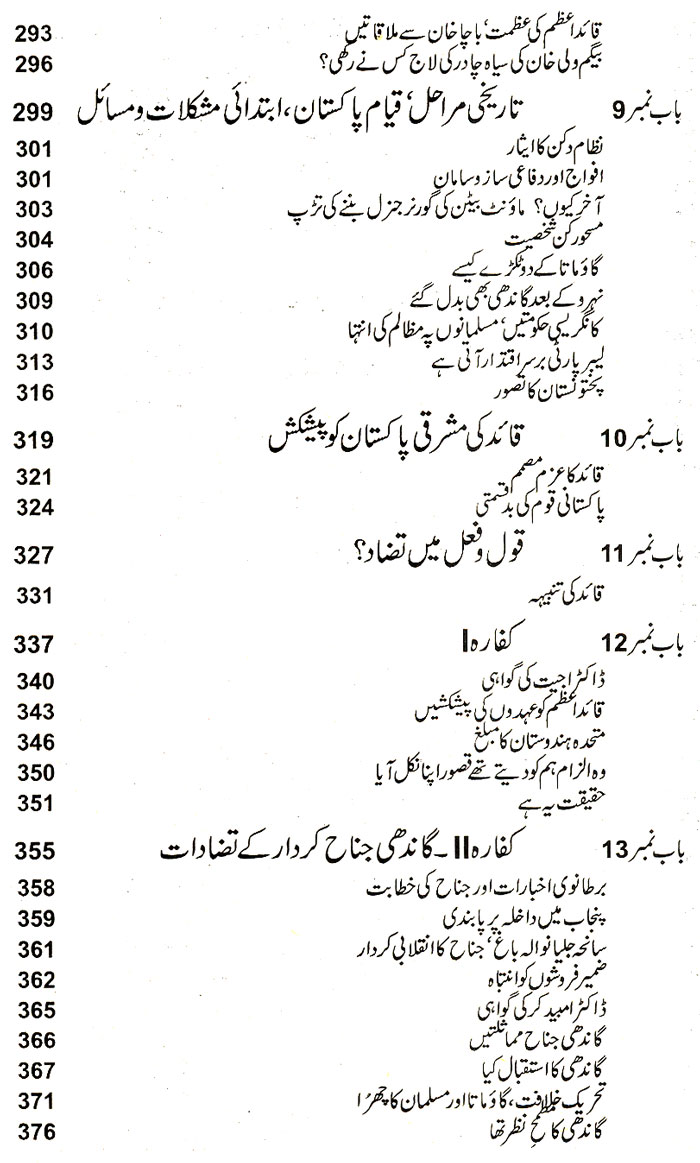 قائداعظم کی عظمت، باچا خان سے ملاقاتیں 293
بیگم ولی خان کی سیاہ چادر کی لاج کس نے رکھی؟ 296
باب نمبر 9 تاریخی مراحل، قیام پاکستان، ابتدائی مشکلات و مسائل 299
نظام دکن کا ایثار 301
افواج اور دفاعی ساز و سامان 301
آخر کیوں؟ ماؤنٹ بیٹن کی گورنر جنرل بننے کی تڑپ 303
مسحور کن شخصیت 304
گاؤ ماتا کے دو ٹکڑے کیسے 306
نہرو کے بعد گاندھی بھی بدل گئے 309
کانگریسی حکومتیں، مسلمانوں پہ مظالم کی انتہا 310
لیبر پارٹی برسر اقتدار آتی ہے 313
پختونستان کا تصور 316
باب نمبر 10 قائد کی مشرقی پاکستان کو پیشکش 319
قائد کا عزم مصمم 321
پاکستانی قوم کی بدقسمتی 324
باب نمبر 11 قول و فعل میں تضاد؟ 327
قائد کی تنبیہہ 331
باب نمبر 12 کفارہ I 337
ڈاکٹر اجیت کی گواہی 340
قائداعظم کو عہدوں کی پیشکشیں 343
متحدہ ہندوستان کا مبلغ 346
وہ الزام ہم کو دیتے تھے قصور اپنا نکل آیا 350
حقیقت یہ ہے 351
باب نمبر 13 کفارہ II ۔ گاندھی جناح کردار کے تضادات 355
برطانوی اخبارات اور جناح کی خطابت 358
پنجاب میں داخلہ پر پابندی 359
سانحہ جلیانوالہ باغ، جناح کا انقلابی کردار 361
ضمیر فروشوں کو انتباہ 362
ڈاکٹر امبیدکر کی گواہی 365
گاندھی جناح مماثلتیں 366
گاندھی کا استقبال کیا 367
تحریک خلافت، گاؤ ماتا اور مسلمان کا چھرا 371
گاندھی کا مطمح نظر تھا 376